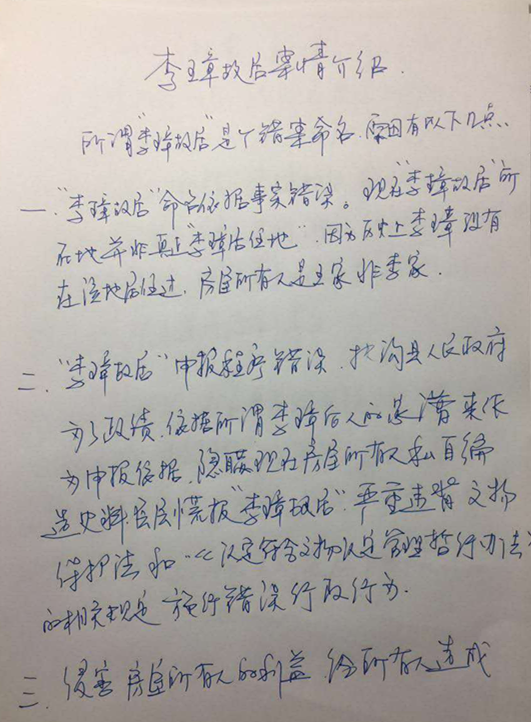 李璋故居案情介绍.
所谓"李璋故居"是个错案命名.原因有以下几点.
一."李璋故居"命名依据事实错误。现在"李璋故居"所
在地并非真正"李璋居住地".因为历史上李璋没有
在该地居住过,房屋所有人是王家非李家.
二."李璋故居"申报程序错误.扶沟县人民政府
为了政绩.依据所谓李璋后人的 来作
为申报依据,隐瞒现在房屋所有人私自编
造史料层层慌报"李璋故居".严重违背文物
保护法和《认定管理暂行办法》
的相关规定 施行错误行政行为.
三.侵害房屋所有人的利益 给所有人造成